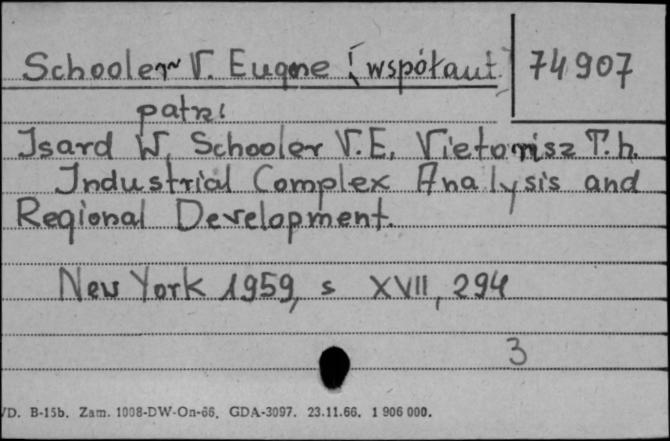 Schooler V. Eugene [współaut.] 74907
patrz:
Isard W, Schooler V.E, Vietorisz T.h.
Industrial Complex Analysis and
Regional Development.
New York 1959, s XVII, 294
3
/D. B-15b. Zam. 1008-DW-On-66. GDA-3097. 23.11.66. 1 906 000.